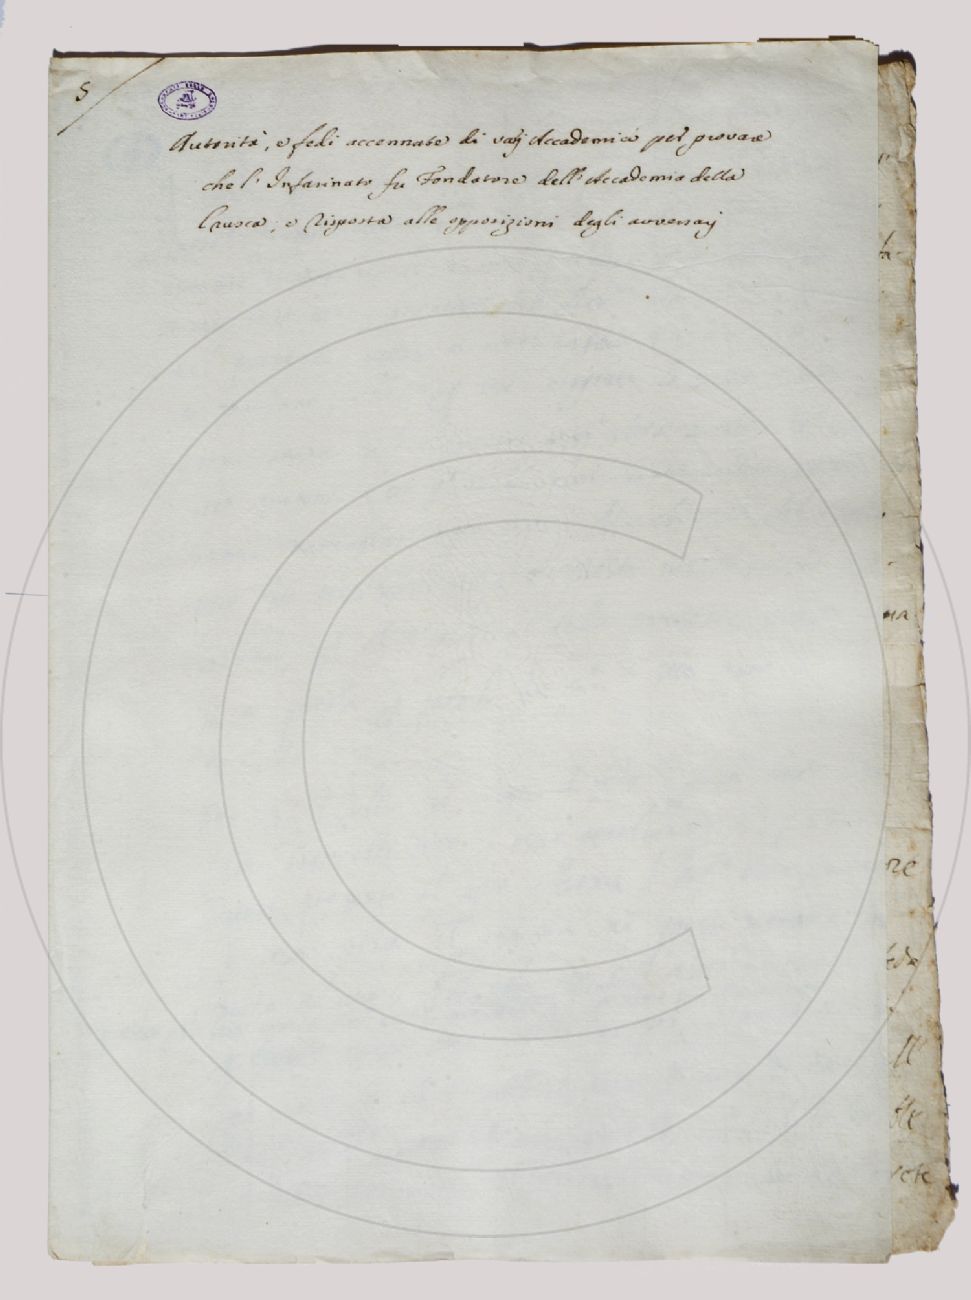 5
Autorità, e fedi accennate di varj Accademici per provare
che l' Infarinato fu Fondatore dell' Accademia della
Crusca; e Risposta alle opposizioni degli avversarj
na
re
feda
ll
lle
rete